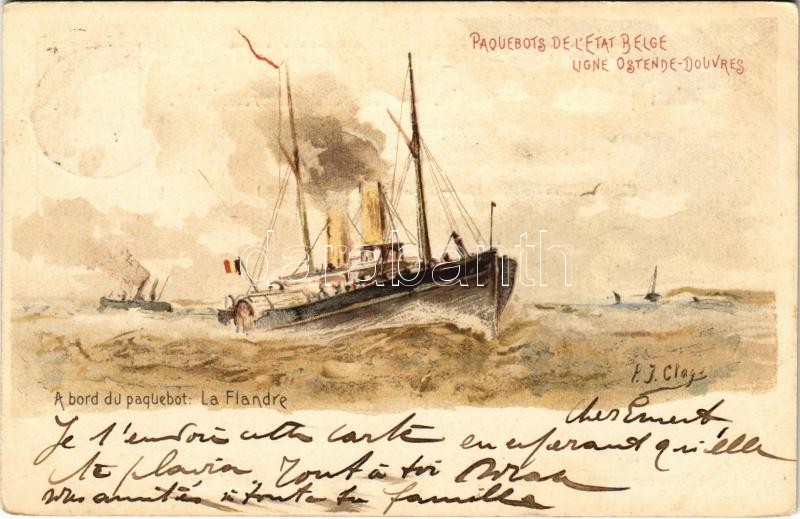 PAQUEBOTS DE L'ETAT BELGE
LIGNE OSTENDE-DOUVRES
darabanth
P. J. Clays
A bord du paquebot: La Flandre
Cher Ernest
Je t'envoie cette carte en esperant qu'elle
te plaira. Tout à toi
mes amitiés à toute ta famille